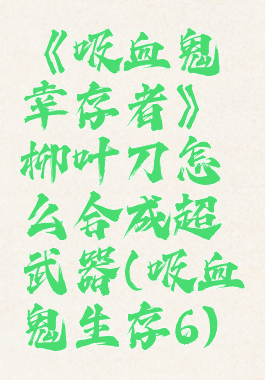 《吸血鬼
幸存者》
柳叶刀怎
么合成超
武器(吸血
鬼生存6)